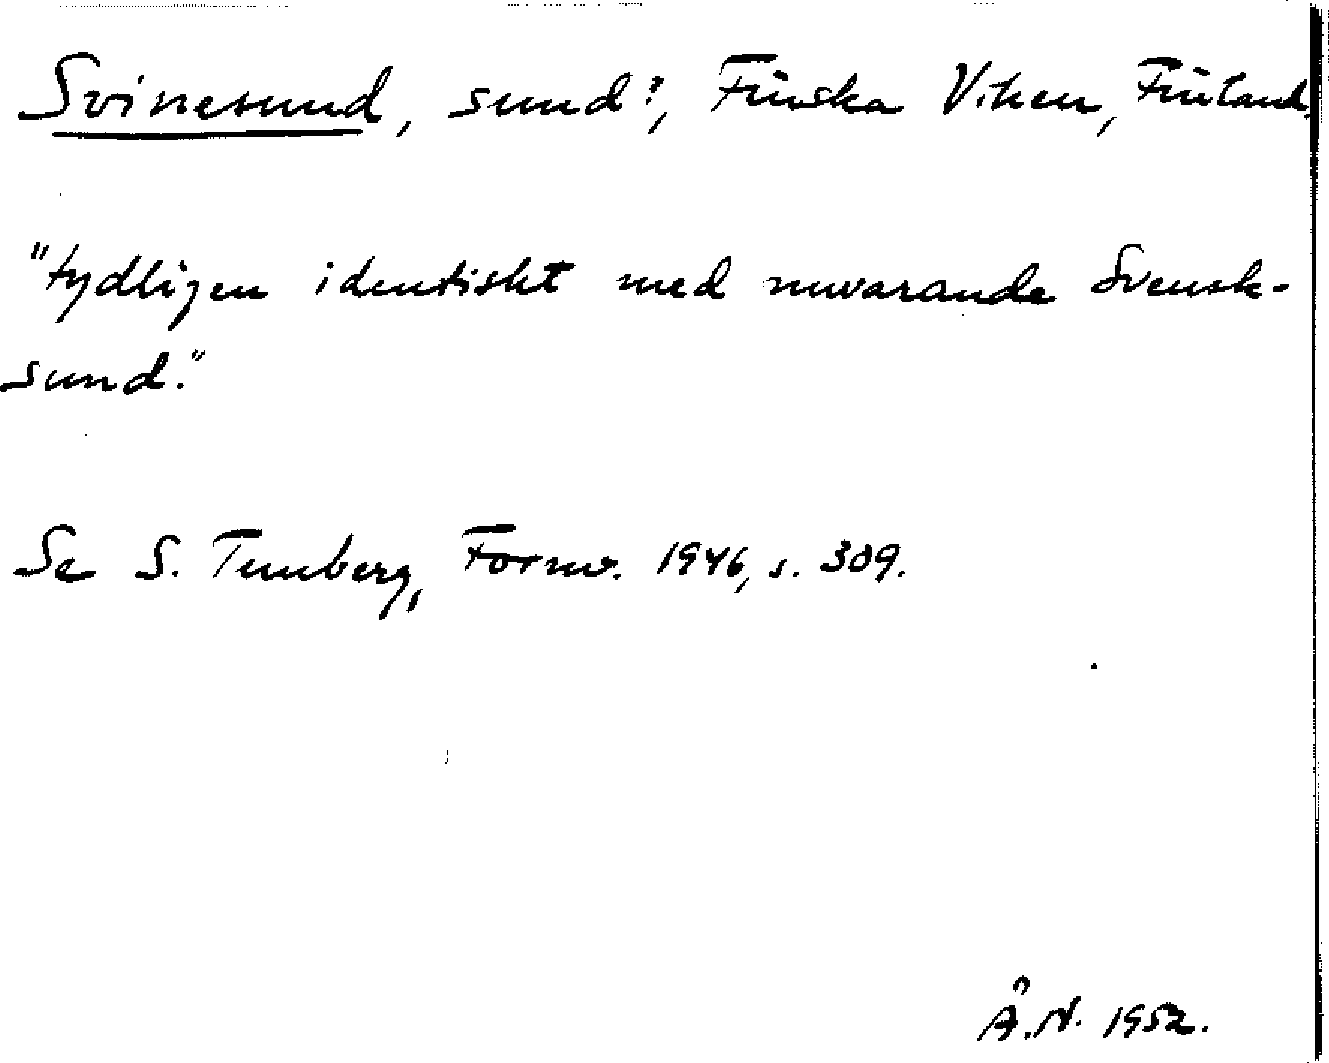 Svinesund, sund?, Finska Viken, Finland.
"tydligen identiskt med nuvarande Svensk-
sund."
Se S. Tunberg, Fornv. 1946, s. 309.
Ä.N. 1952.